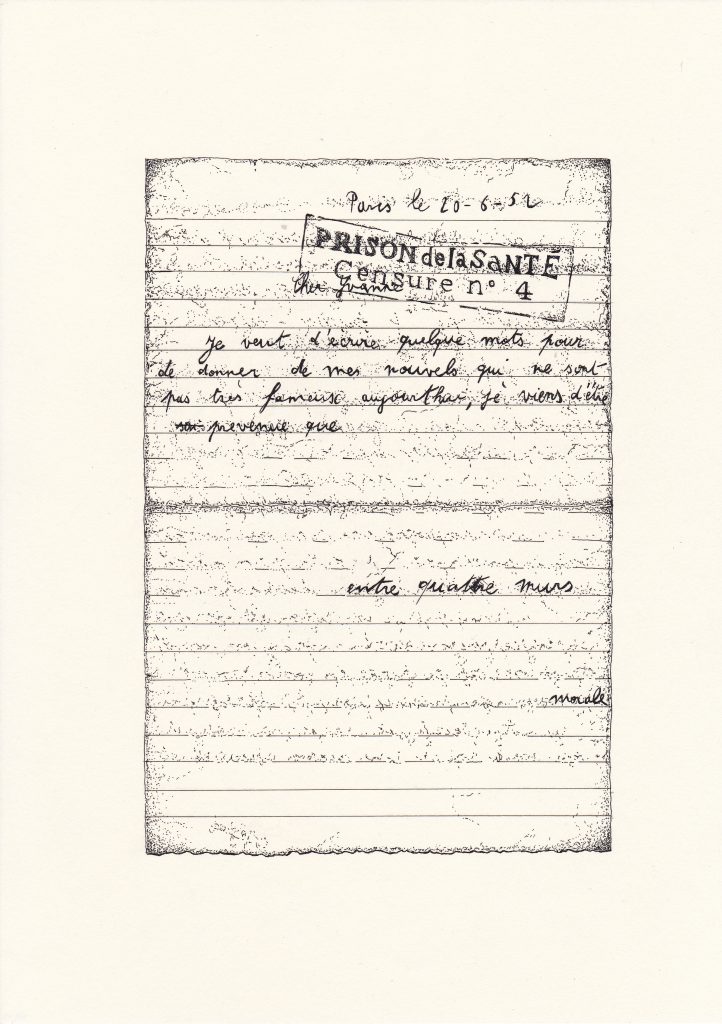 Paris le 20-6-52
PRISON de la SANTÉ
Censure n° 4
Cher Yvanne
Je veut d'écrire quelque mots pour
de donner de mes nouvels qui ne sont
pas très fameux aujourthui, je viens d'être
prevenue que
entre quattre murs
morale